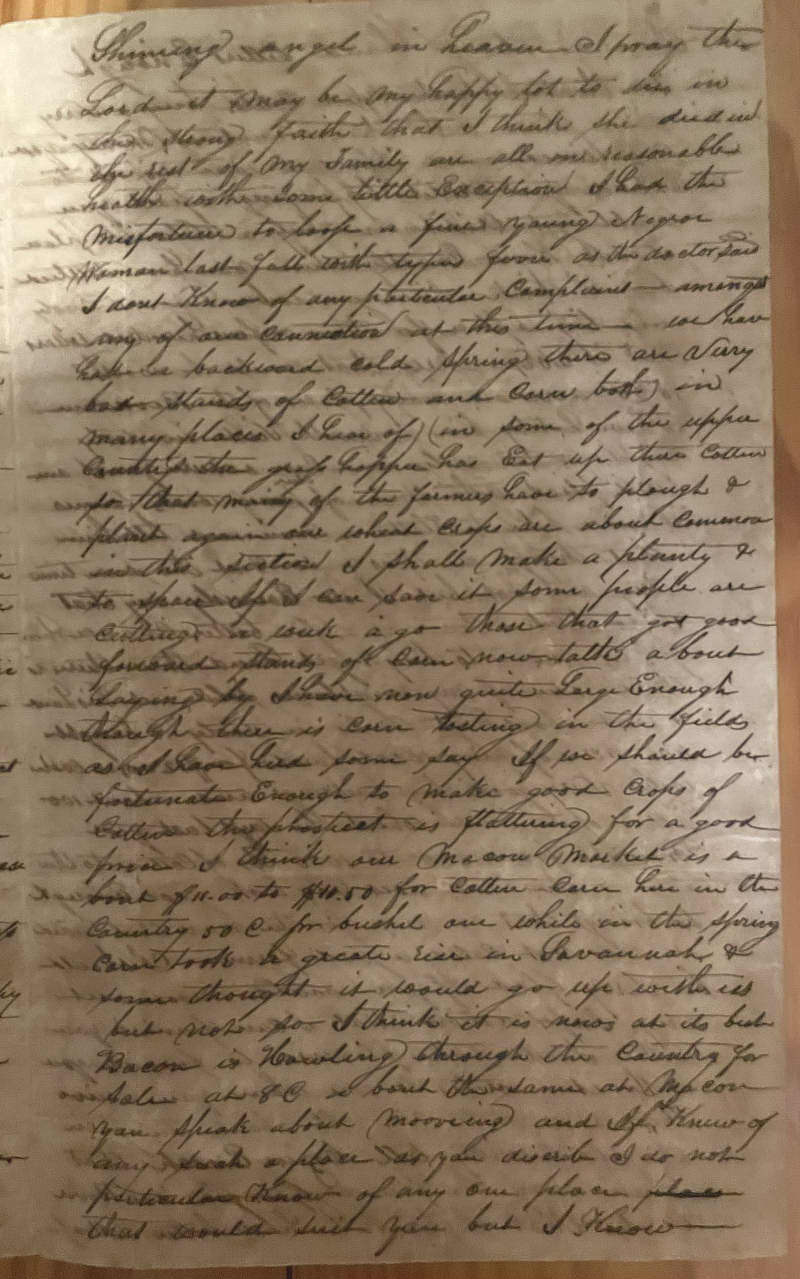 Shineing angel in heaven I pray the
Lord it may be my happy lot to die in
the strong faith that I think she died in
the rest of my Family are all in reasonable
health with some little Exception I had the
misfortune to loose a fine young Negroe
Woman last fall with typus fever as the doctor said
I dont Know of any pticular Complaint amongst
any of our Connection at this time we have
had a backward cold Spring there are Very
bad stands of Cotten and Corn both) in
many places I hear of) (in some of the upper
Counties the grass hopper has Eat up there Cotten
so that many of the farmers have to plough &
plant again our wheat Crops are about Common
in this section I shall make a plenty &
to spare If I can save it some people are
Cutting a week ago those that got good
forward stands of Corn now talk about
laying by I have now quite Large Enough
though there is corn tosling) in the fields
as I have herd some say If we should be
fortunate Enough to make good Crops of
Cotten the prospect is flattering) for a good
price I think our Macon Market is a
bout $11.00 to $11.50 for Cotten Corn here in the
Country 50 C pr bushel one while in the spring
Corn took a greate rise in Savannah &
some thought it would go up with us
but not so I think it is now at its best
Bacon is Hawling) through the Country for
sale at 8 C a bout the same at Macon
you speak about mooving) and If I Knew of
any such a place as you discribe I do not
pticular Know of any one place
that would suit you but I Know